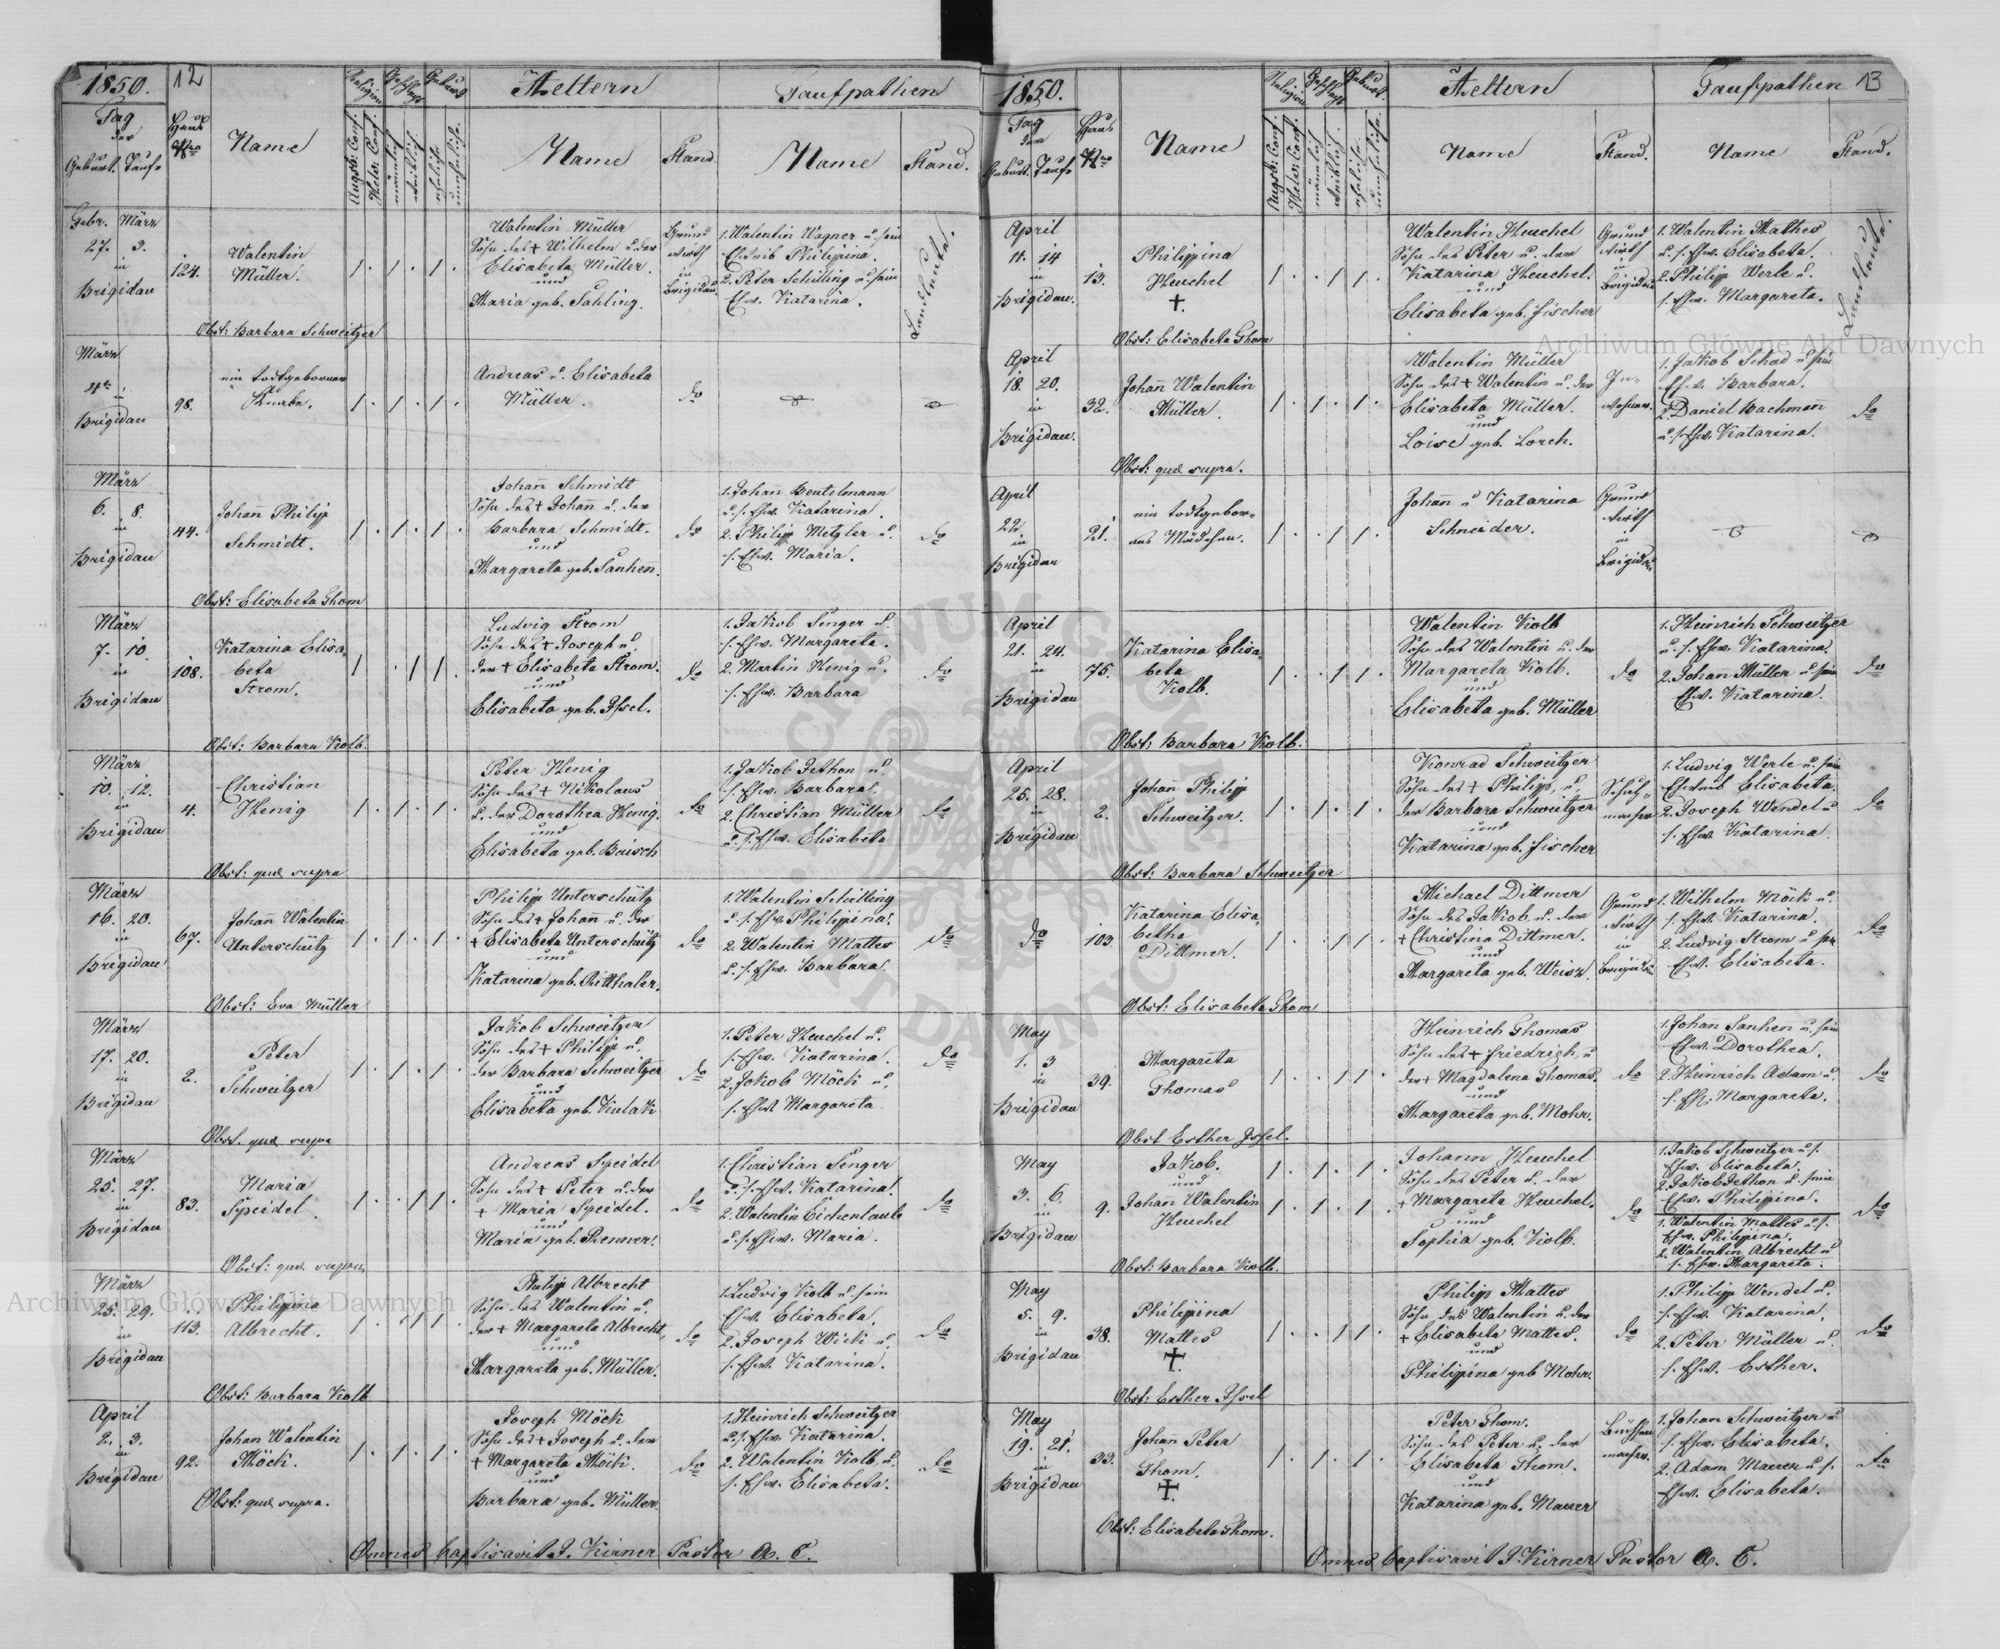 1850.
12
Religion
Geschlecht
Geburt
Aeltern
Taufpathen
Tag
der
Geburt. Taufe
Haus
Nro
Name
Augsb: Conf.
Helv: Conf.
männlich
weiblich
eheliche
uneheliche
Name
Stand
Name
Stand.
Febr. März
27. 3.
in
Brigidau
124.
Valentin
Müller.
Valentin Müller
Sohn des + Wilhelm u. der
Elisabeta Müller.
und
Maria geb. Sahling.
Grund
wirth
in
Brigidau.
1. Valentin Wagner u. sein
Eheweib Philippina.
2. Peter Schilling u. sein
Ehw. Katarina.
Landleute.
Obst: Barbara Schweitzer
März
4te
in
Brigidau
98.
ein todtgeborner
Knabe.
Andreas u. Elisabeta
Müller.
do
März
6. 8.
in
Brigidau
44.
Johan̄ Philipp
Schmidt.
Johan̄ Schmidt
Sohn des + Johan̄ u. der
Barbara Schmidt.
und
Margareta geb. Sanhen.
do
1. Johan̄ Beutelmann
u. s. Ehw. Katarina.
2. Philipp Metzler u.
s. Ehw. Maria.
do
Obst: Elisabeta Thom
März
7. 10.
in
Brigidau
108.
Katarina Elisa-
beta
Strom.
Ludvig Strom
Sohn des + Joseph u.
der + Elisabeta Strom.
und
Elisabeta geb. Issel.
do
1. Jakob Senger u.
s. Ehw. Margareta.
2. Martin Henig u.
s. Ehw. Barbara
do
Obst: Barbara Kolb.
März
10. 12.
in
Brigidau
4.
Christian
Henig
Peter Henig
Sohn des + Nikolaus
u. der Dorothea Henig.
und
Elisabeta geb. Baisch
do
1. Jakob Jethon u.
s. Ehw. Barbara.
2. Christian Müller
u. s. Ehw. Elisabeta
do
Obst: quæ supra
März
16. 20.
in
Brigidau
67.
Johan̄ Valentin
Unterschütz
Philipp Unterschütz
Sohn des + Johan̄ u. der
+ Elisabeta Unterschütz
und
Katarina geb. Ritthaler.
do
1. Valentin Schilling
u. s. Ehw. Philippina.
2. Valentin Mattes
u. s. Ehw. Barbara.
do
Obst: Eva Müller
März
17. 20.
in
Brigidau
2.
Peter
Schweitzer
Jakob Schweitzer
Sohn des + Philipp u.
der Barbara Schweitzer
und
Elisabeta geb. Kulak
do
1. Peter Heuchel u.
s. Ehw. Katarina.
2. Jakob Möck u.
s. Ehw. Margareta
do
Obst. quæ supra
März
25. 27.
in
Brigidau
83.
Maria
Speidel
Andreas Speidel
Sohn des + Peter u. der
+ Maria Speidel.
und
Maria geb. Renner.
do
1. Christian Senger
u. s. Ehw. Katarina.
2. Valentin Eichenlaub
u. s. Ehw. Maria.
do
Obst: quæ supra
März
25. 29.
in
Brigidau
113.
Philippina
Albrecht.
Philipp Albrecht
Sohn des Valentin u.
der + Margareta Albrecht,
und
Margareta geb. Müller.
do
1. Ludvig Kolb u. sein
Ehw. Elisabeta.
2. Joseph Wick u.
s. Ehw. Katarina.
do
Obst: Barbara Kolb
April
2. 3.
in
Brigidau
92.
Johan Valentin
Möck.
Joseph Möck
Sohn des + Joseph u. der
+ Margareta Möck.
und
Barbara geb. Müller.
do
1. Heinrich Schweitzer
u. s. Ehw. Katarina.
2. Valentin Kolb u.
s. Ehw. Elisabeta.
do
Obst: quæ supra.
Omnes baptisavit J. Kirner Pastor A. C.
1850.
Religion
Geschlecht
Geburt.
Aeltern
Taufpathen
13
Tag
der
Geburt. Taufe
Haus
Nro
Name
Augsb: Conf.
Helv: Conf.
männlich
weiblich.
eheliche.
uneheliche.
Name
Stand.
Name
Stand.
April
11. 14
in
Brigidau.
13.
Philippina
Heuchel
+
Valentin Heuchel
Sohn des Peter u. der
Katarina Heuchel.
und
Elisabeta geb. Fischer
Grund
wirth
in
Brigidau
1. Valentin Mathes
u. s. Ehw. Elisabeta.
2. Philipp Werle u.
s. Ehw. Margareta.
Landleute.
Obst: Elisabeta Thom
April
18. 20.
in
Brigidau.
32.
Johan̄ Valentin
Müller.
Valentin Müller
Sohn des + Valentin u. der
Elisabeta Müller.
und
Loise geb. Lorch.
In-
wohner.
1. Jakob Schad u. sein
Ehw. Barbara.
2. Daniel Bachmann
u. s. Ehw. Katarina.
do
Obst: quæ supra.
April
22.
in
Brigidau
21.
ein todtgebor-
nes Mädchen.
Johan̄ u Katarina
Schneider.
Grund
wirth
in
Brigidau
April
21. 24.
in
Brigidau
75.
Katarina Elisa-
beta
Kolb.
Valentin Kolb
Sohn des Valentin u. der
Margareta Kolb.
und
Elisabeta geb. Müller
do
1. Heinrich Schweitzer
u. s. Ehw. Katarina.
2. Johan̄ Müller u. sein
Ehw. Katarina.
do
Obst: Barbara Kolb.
April
25. 28.
in
Brigidau
2.
Johan̄ Philipp
Schweitzer.
Konrad Schweitzer
Sohn des + Philipp, u.
der Barbara Schweitzer
und
Katarina geb. Fischer
Schuh-
macher
1. Ludvig Werle u. sein
Eheweib Elisabeta.
2. Joseph Wendel u
s. Ehw. Katarina
do
Obst: Barbara Schweitzer
do
103.
Katarina Elisa-
betha
Dittmer.
Michael Dittmer
Sohn des Jakob u. der
+ Christina Dittmer.
und
Margareta geb. Weisz.
Grund
wirth
in
Brigidau
1. Wilhelm Möck u.
s. Ehw. Katarina.
2. Ludvig Strom u. sein
Ehw. Elisabeta.
do
Obst: Elisabeta Thom
May
1. 3
in
Brigidau
39.
Margareta
Thomas
Heinrich Thomas
Sohn des + Friedrich u
der + Magdalena Thomas.
und
Margareta geb. Mohr.
do
1. Johan Sanhen u. sein
Ehw. Dorothea.
2. Heinrich Adam u.
s. Ehw. Margareta.
do
Obst Esther Issel.
May
3. 6.
in
Brigidau
9.
Jakob.
und
Johan Valentin
Heuchel
Johann Heuchel
Sohn des Peter u. der
+ Margareta Heuchel.
und
Sophia geb. Kolb.
do
1. Jakob Schweitzer u. s.
Ehw. Elisabeta.
2. Jakob Jethon u. sein
Ehw. Philippina.
1. Valentin Mattes u. s.
Ehw. Philippina.
2. Valentin Albrecht u
s. Ehw. Margareta.
do
Obst: Barbara Kolb.
May
5. 9.
in
Brigidau
38.
Philippina
Mattes
+
Philipp Mattes
Sohn des Valentin u. der
+ Elisabeta Mattes.
und
Philippina geb Mohr.
do
1. Philipp Wendel u.
s. Ehw. Katarina.
2. Peter Müller u.
s. Ehw. Esther.
do
Obst: Esther Issel
May
19. 21.
in
Brigidau
33.
Johan̄ Peter
Thom.
+
Peter Thom.
Sohn des Peter u. der
Elisabeta Thom.
und
Katarina geb. Maurer
Büchsen
macher.
1. Johan Schweitzer u
s. Ehw. Elisabeta.
2. Adam Maurer u. s.
Ehw. Elisabeta.
do
Obst: Elisabeta Thom.
Omnes baptisavit J. Kirner Pastor A. C.
Archiwum Główne Akt Dawnych
Archiwum Główne Akt Dawnych
ARCHIWUM GŁÓWNE AKT DAWNYCH